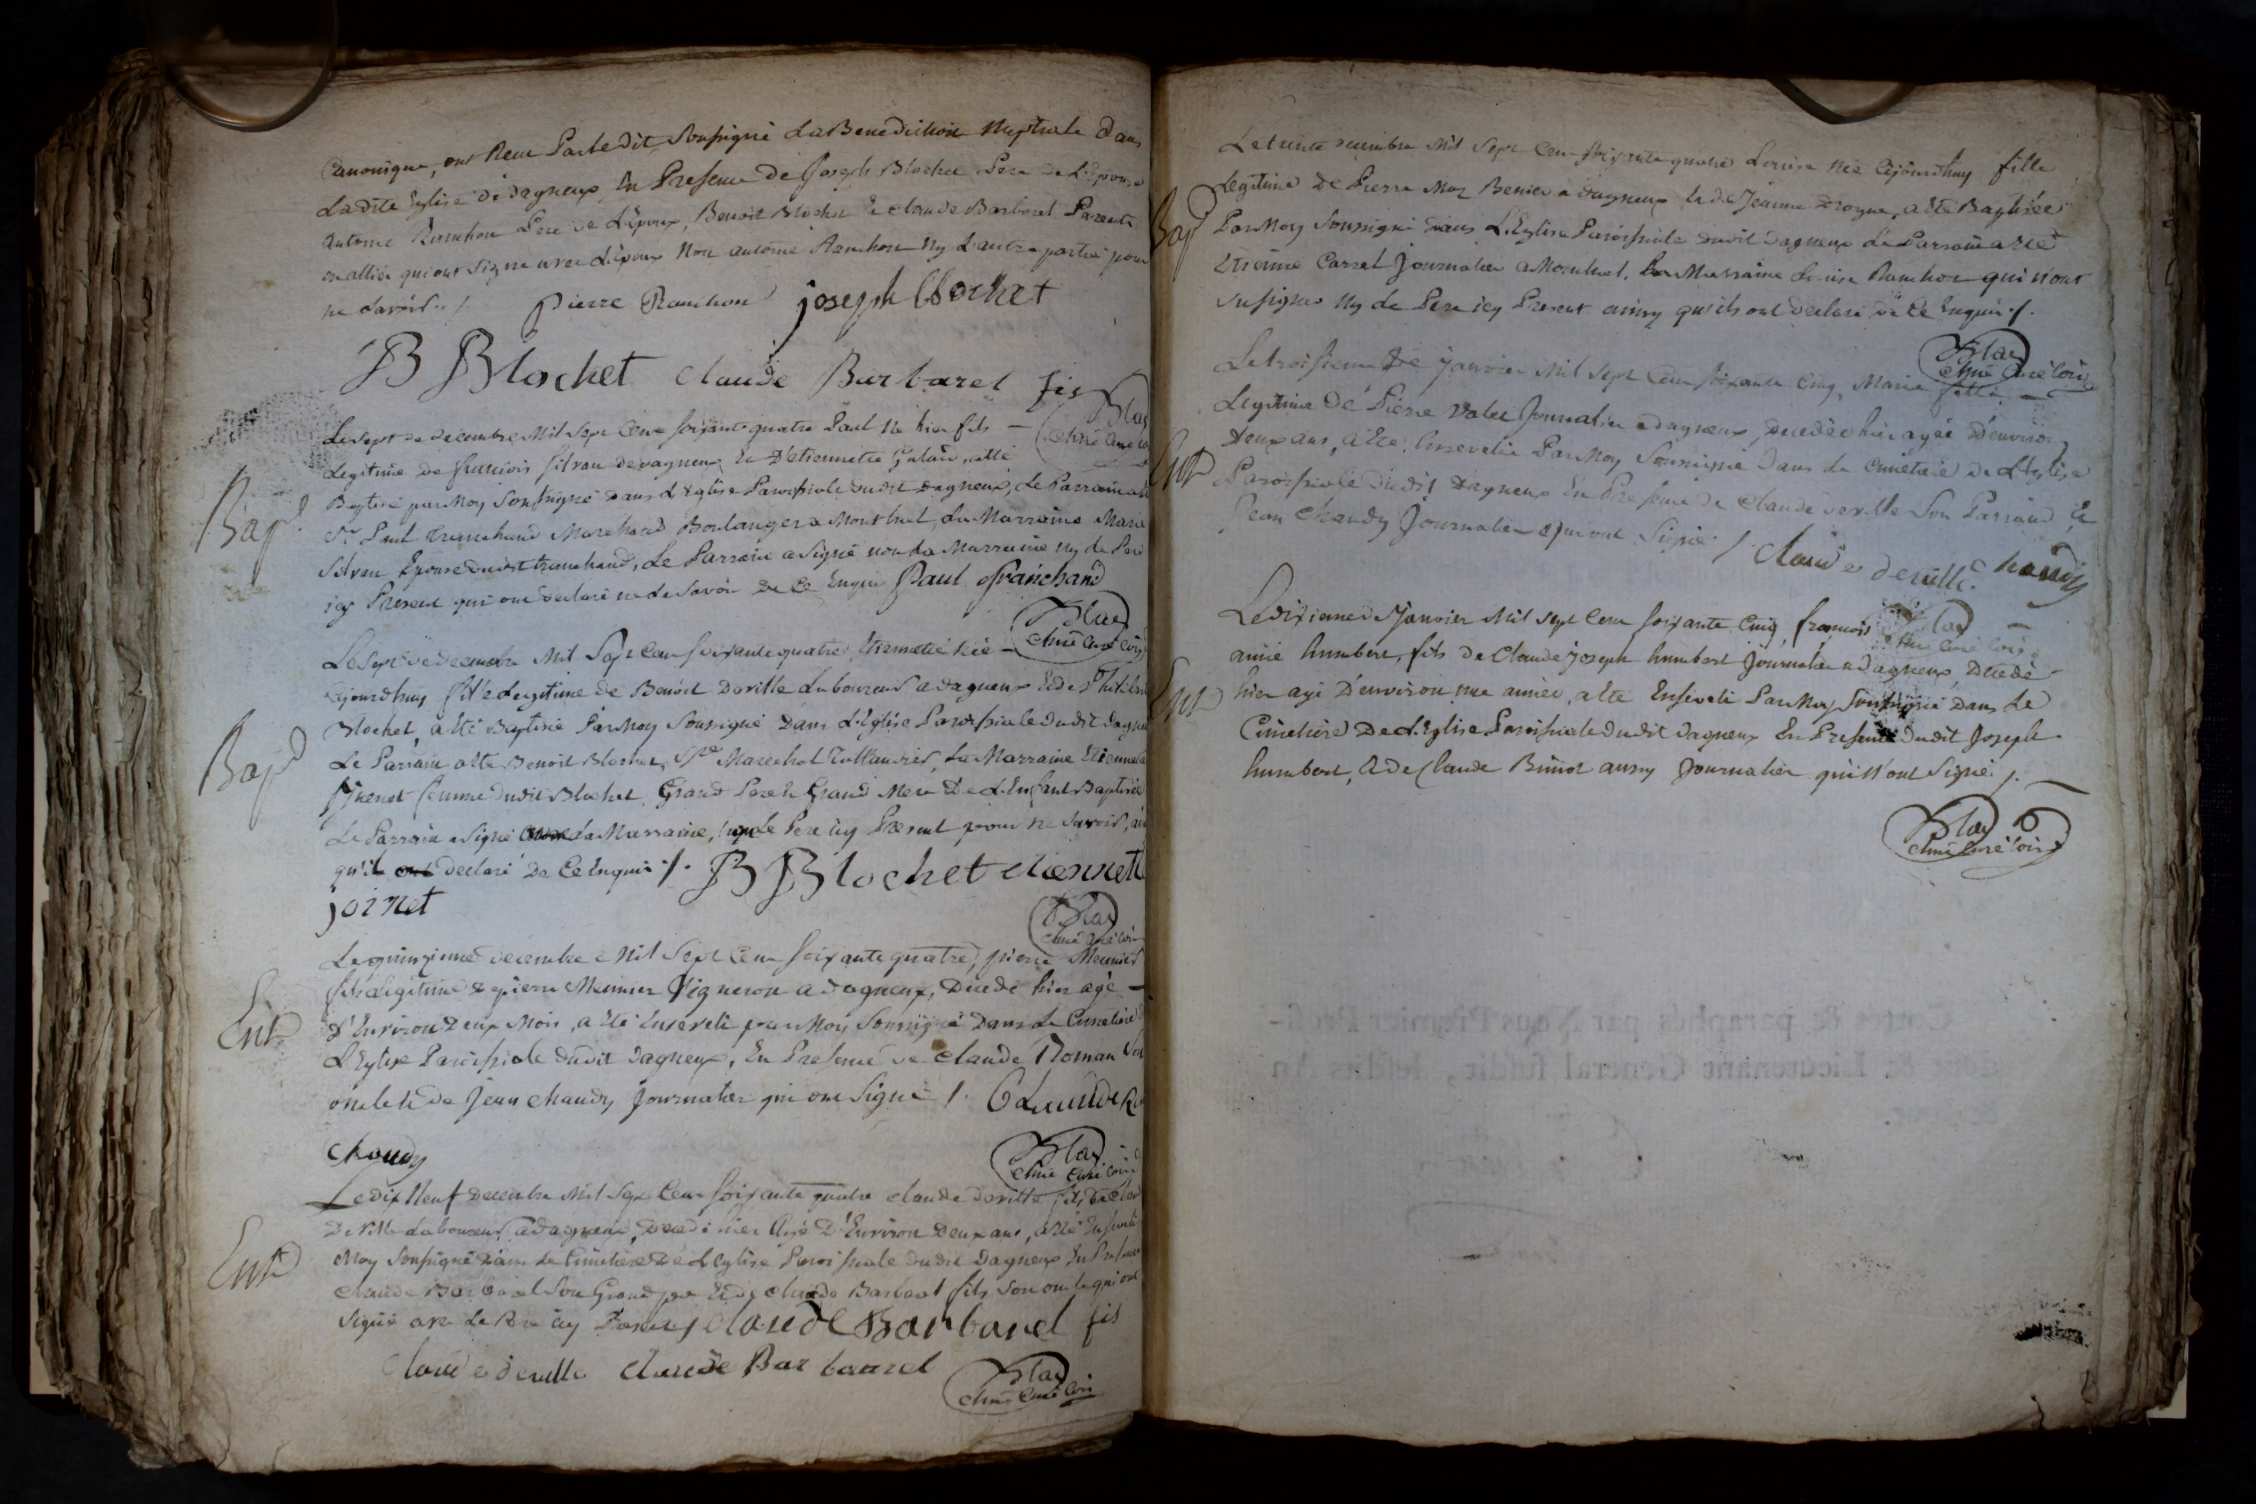 Canonique, ont Reçu Par le dit Soussigné La Benediction Nuptiale dans
La dite Eglise de dagneux En Presence de Joseph Blochet Pere de L'Epouse
antoine Ranchon Pere de L'Epoux, Benoit Blochet & claude Barbaret Parents
ou alliés qui ont signé avec L'époux Non antoine Ranchon Ny L'autre partie pour
ne Savoir ./. pierre Ranchon joseph Blochet
B Blochet claude Barbaret fis
Blay
chne Curé
Le sept de decembre Mil Sept Cent soixante quatre Paul Né hier fils
Legitime de francois Silvan de dagneux Et D'étiennette a été
Bapt
Baptisé par Moy Soussigné dans L'Eglise Paroissiale dudit dagneux, Le Parrain a été
Sr Paul tranchand Marchand Boulanger a Montluel La Marraine Marie
Silvan Epouse dudit tranchand, Le Parrain a Signé non La Marraine Ny Le Pere
icy Present qui ont declaré ne Le Savoir de Ce Enquis Paul tranchand
Blay
chne Curé Coire
Le Sept de decembre Mil Sept Cent Soixante quatre, Etiennette Née
Cejourdhuy fille Legitime de Benoit Deville Laboureur a dagneux Et de
Blochet, a été Baptisée Par Moy Soussigné Dans L'Eglise Paroissiale dudit dagneux
Bapt
Le Parrain a été Benoit Blochet, La Marraine Etiennette
femme dudit Blochet Grand Pere & Grand Mere De L'Enfant Baptisée
Le Parrain a Signé La Marraine, Le Pere icy Present pour ne Savoir,
qu'il declaré De Ce Enquis ./. B Blochet etiennette
joinet
Blay
chne Curé Coire
Le quinzieme decembre Mil Sept Cent soixante quatre, pierre Meunier
fils Legitime de pierre Meunier Vigneron a dagneux, Decedé hier agé
Ent
D'Environ deux Mois, a été Enseveli par Moy Soussigné Dans Le Cimetiere
L'Eglise Paroissiale dudit dagneux, En Presence de claude Roman Son
oncle & de Jean chaudy Journalier qui ont Signé ./. Claude
chaudy
Blay
chne Curé Coire
Le dix Neuf decembre Mil Sept Cent soixante quatre claude deville fils de
Deville Laboureur a dagneux, Decedé hier Agé D'Environ Deux ans, a été Enseveli
Ent
Moy Soussigné dans Le Cimetiere De L'Eglise Paroissiale dudit dagneux En Presence
claude Barbaret Son Grand pere Et de claude Barbaret fils Son oncle qui ont
Signé avec Le Pere icy Present claude Barbarel fis
claude deville claude Barbaret
Blay
chne Curé Coire
Le trente decembre Mil Sept Cent Soixante quatre Louise Née Cejourdhuy fille
Legitime de Pierre a dagneux Et de Jeanne, a été Baptisée
Bapt
Par Moy Soussigné dans L'Eglise Paroissiale dudit dagneux Le Parrain a été
Etienne Carrel Journalier a Montluel. La Marraine Louise Ranchon qui n'ont
Su signer Ny Le Pere icy Present ainsy qu'ils ont declaré de Ce Enquis ./.
Blay
chne Curé Coire
Le troisieme de Janvier Mil Sept Cent soixante Cinq, Marie fille
Legitime De Pierre Journalier a dagneux, Decedée hier agée D'environ
deux ans, a été Ensevelie Par Moy Soussigné Dans Le Cimetiere de L'Eglise
Ent
Paroissiale dudit dagneux En Presence de Claude deville Son Parrain &
Jean Chaudy Journalier qui ont Signé ./. claude deville chaudy
Blay
chne Curé Coire
Le dixieme Janvier Mil Sept Cent soixante Cinq, francois
aimé humbert, fils de Claude Joseph humbert Journalier a dagneux, Decedé
Ent
hier agé D'environ une année, a été Enseveli Par Moy Soussigné Dans Le
Cimetiere De L'Eglise Paroissiale dudit dagneux En Presence dudit Joseph
humbert, & de Claude aussy Journalier qui n'ont Signé ./.
Blay
chne Curé Coire